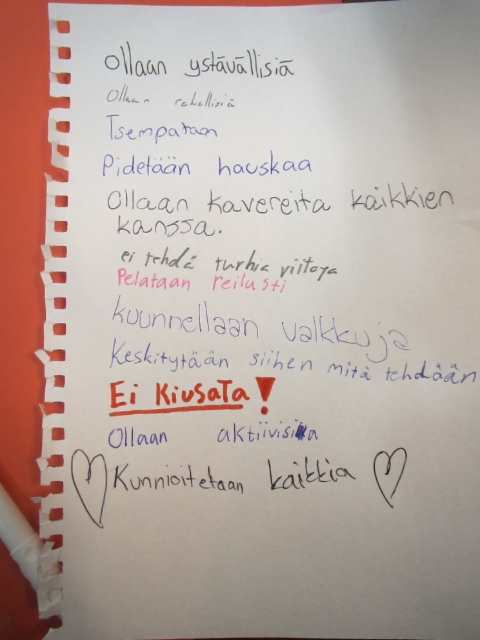 Ollaan ystävällisiä
Ollaan rehellisiä
Tsempataan
Pidetään hauskaa
Ollaan kavereita kaikkien
kanssa.
ei tehdä turhia riitoja
Pelataan reilusti
kuunnellaan valkkuja
Keskitytään siihen mitä tehdään
Ei kiusata!
Ollaan aktiivisia
Kunnioitetaan kaikkia